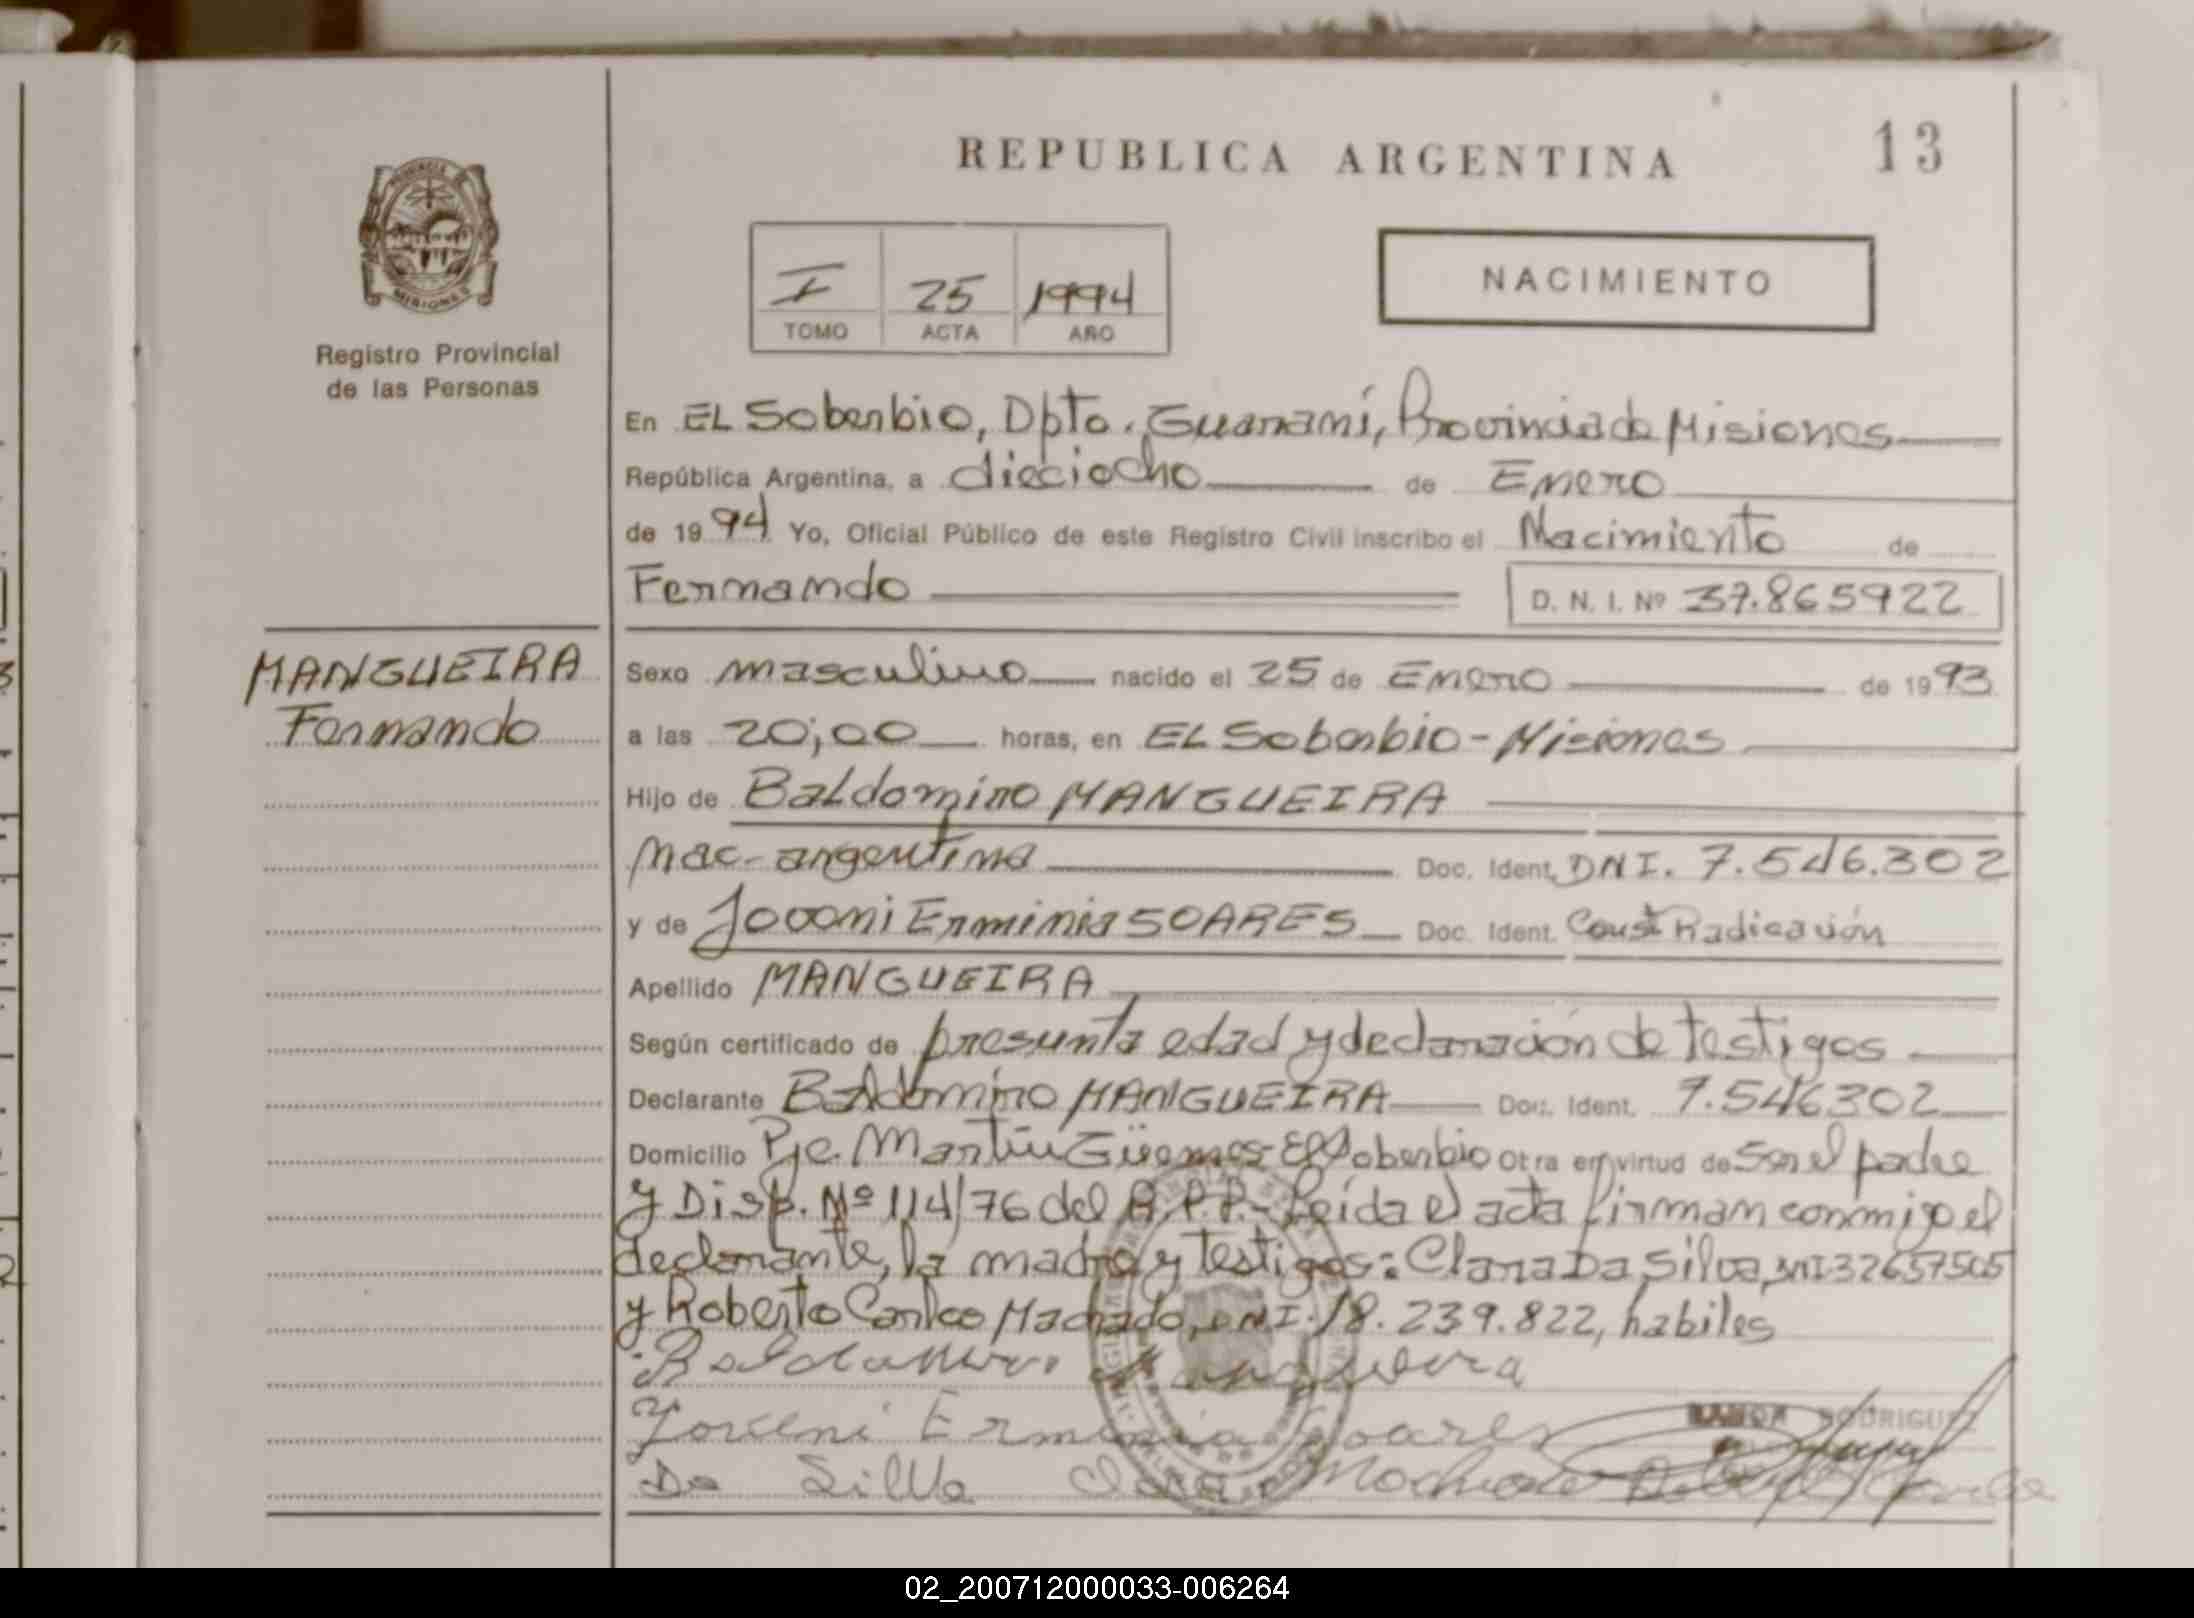 REPUBLICA ARGENTINA
13
PROVINCIA DE
MISIONES
Registro Provincial
de las Personas
I 25 1994
TOMO ACTA AÑO
NACIMIENTO
En EL Soberbio, Dpto. Guaraní, Provincia de Misiones
República Argentina, a dieciocho de Enero
de 1994 Yo, Oficial Público de este Registro Civil inscribo el Nacimiento de
Fernando D. N. I. Nº 37.865922
MANGUEIRA
Fernando
Sexo masculino nacido el 25 de Enero de 1993
a las 20;00 horas, en EL Soberbio - Misiones
Hijo de Baldomiro MANGUEIRA
Nac- argentina Doc. Ident. DNI. 7.546.302
y de Jovani Erminia SOARES Doc. Ident. Const Radicación
Apellido MANGUEIRA
Según certificado de presunta edad y declaración de testigos
Declarante Baldomiro MANGUEIRA Doc. Ident. 7.546302
Domicilio Pje. Martín Güemes - El Soberbio Otra en virtud de Ser el padre
y Disp. Nº 114/76 del R.P.P.- Leída el acta firman conmigo el
declarante, la madre y testigos: Clara Da Silva, DNI 32657505
y Roberto Carlos Machado, DNI. 18.239.822, habiles
Mangueira
Erminia Soares
RAMON RODRIGUEZ
Da Silva Clara Machado
02_200712000033-006264